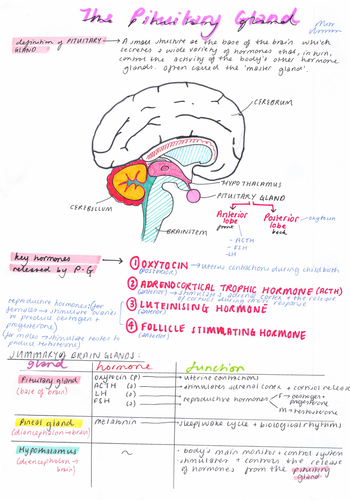 The Pituitary Gland
definition of PITUITARY GLAND
A small structure at the base of the brain which
secretes a wide variety of hormones that, in turn,
control the activity of the body's other hormone
glands. Often called the 'master gland'.
CEREBRUM
HYPOTHALAMUS
PITUITARY GLAND
CEREBELLUM
BRAINSTEM
Anterior lobe
front
- ACTH
- LH
- FSH
Posterior lobe
back
oxytocin
key hormones
released by P.G
① OXYTOCIN → uterus contractions during childbirth
(posterior)
② ADRENOCORTICAL TROPHIC HORMONE (ACTH)
(anterior) → stimulates adrenal cortex + the release
of cortisol during stress response
③ LUTEINISING HORMONE
(anterior)
④ FOLLICLE STIMULATING HORMONE
(anterior)
reproductive hormones (for
females → stimulate ovaries
to produce oestrogen +
progesterone)
(for males → stimulate testes to
produce testosterone)
SUMMARY OF BRAIN GLANDS:
gland hormone function
Pituitary gland
(base of brain)
Oxytocin (p) → uterine contractions
ACTH (a) → stimulates adrenal cortex + cortisol release
LH (a)
FSH (a)
reproductive hormones
F → oestrogen +
progesterone
M → testosterone
Pineal gland
(diencephalon → brain)
melatonin
sleep/wake cycle + biological rhythms
Hypothalamus
(diencephalon → brain)
~
· body's main monitor + control system
· stimulates + controls the release
of hormones from the pituitary
gland